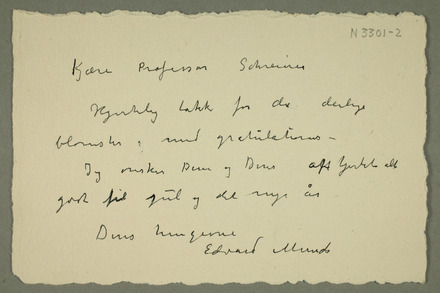 N 3301-2
Kjære Professor Schreiner
Hjertelig takk for de deilige
blomster, med gratulationer –
Jeg ønsker Dem og Deres alt
godt til jul og det nye år
Deres hengivne
Edvard Munch